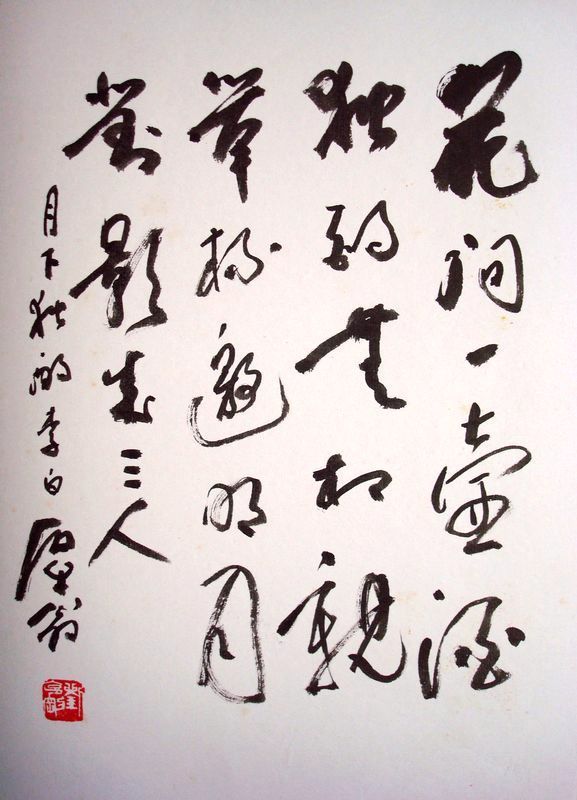 花間一壺酒
獨酌無相親
舉杯邀明月
對影成三人
月下獨酌李白